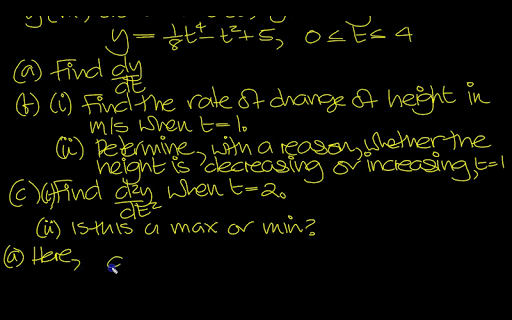 y = 1/8 t⁴ - t² + 5, 0 ≤ t ≤ 4
(a) Find dy/dt
(b) (i) Find the rate of change of height in
m/s when t=1.
(ii) Determine, with a reason, whether the
height is decreasing or increasing, t=1
(c) (i) Find d²y/dt² when t=2.
(ii) Is this a max or min?
(a) Here,